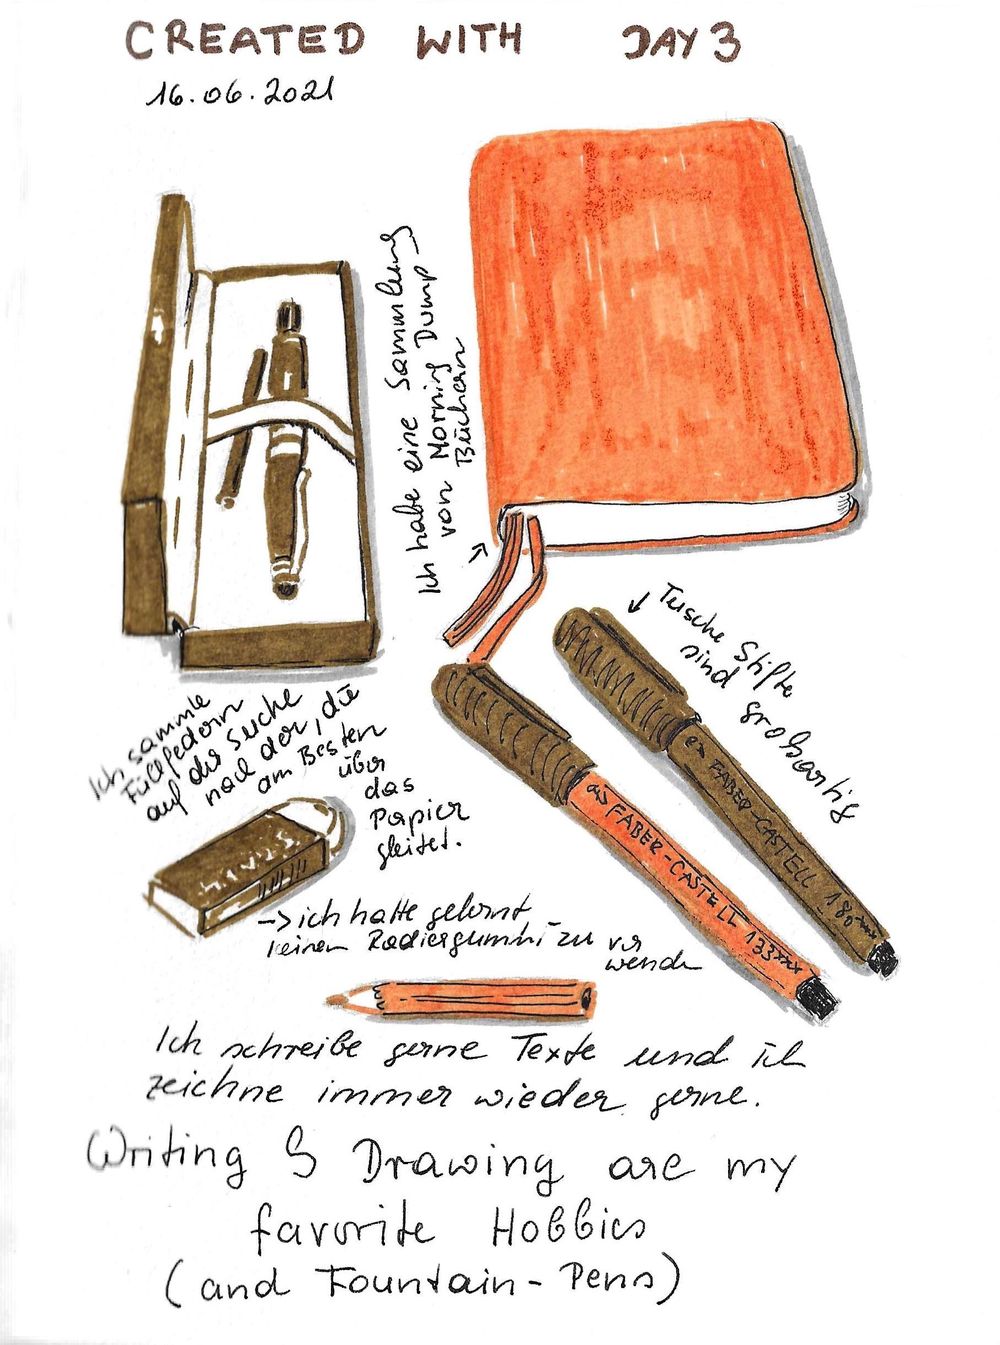 CREATED WITH DAY 3
16.06.2021
Ich habe eine Sammlung
von Morning Dump-
Büchern
Tusche Stifte
sind großartig
Ich sammle
Füllfedern
auf der Suche
nach der, die
am Besten
über
das
Papier
gleitet.
FABER-CASTELL 180
FABER-CASTELL 133xxx
->ich hatte gelernt
keinen Radiergummi zu ver
wenden
Ich schreibe gerne Texte und ich
zeichne immer wieder gerne.
Writing & Drawing are my
favorite Hobbies
(and Fountain-Pens)